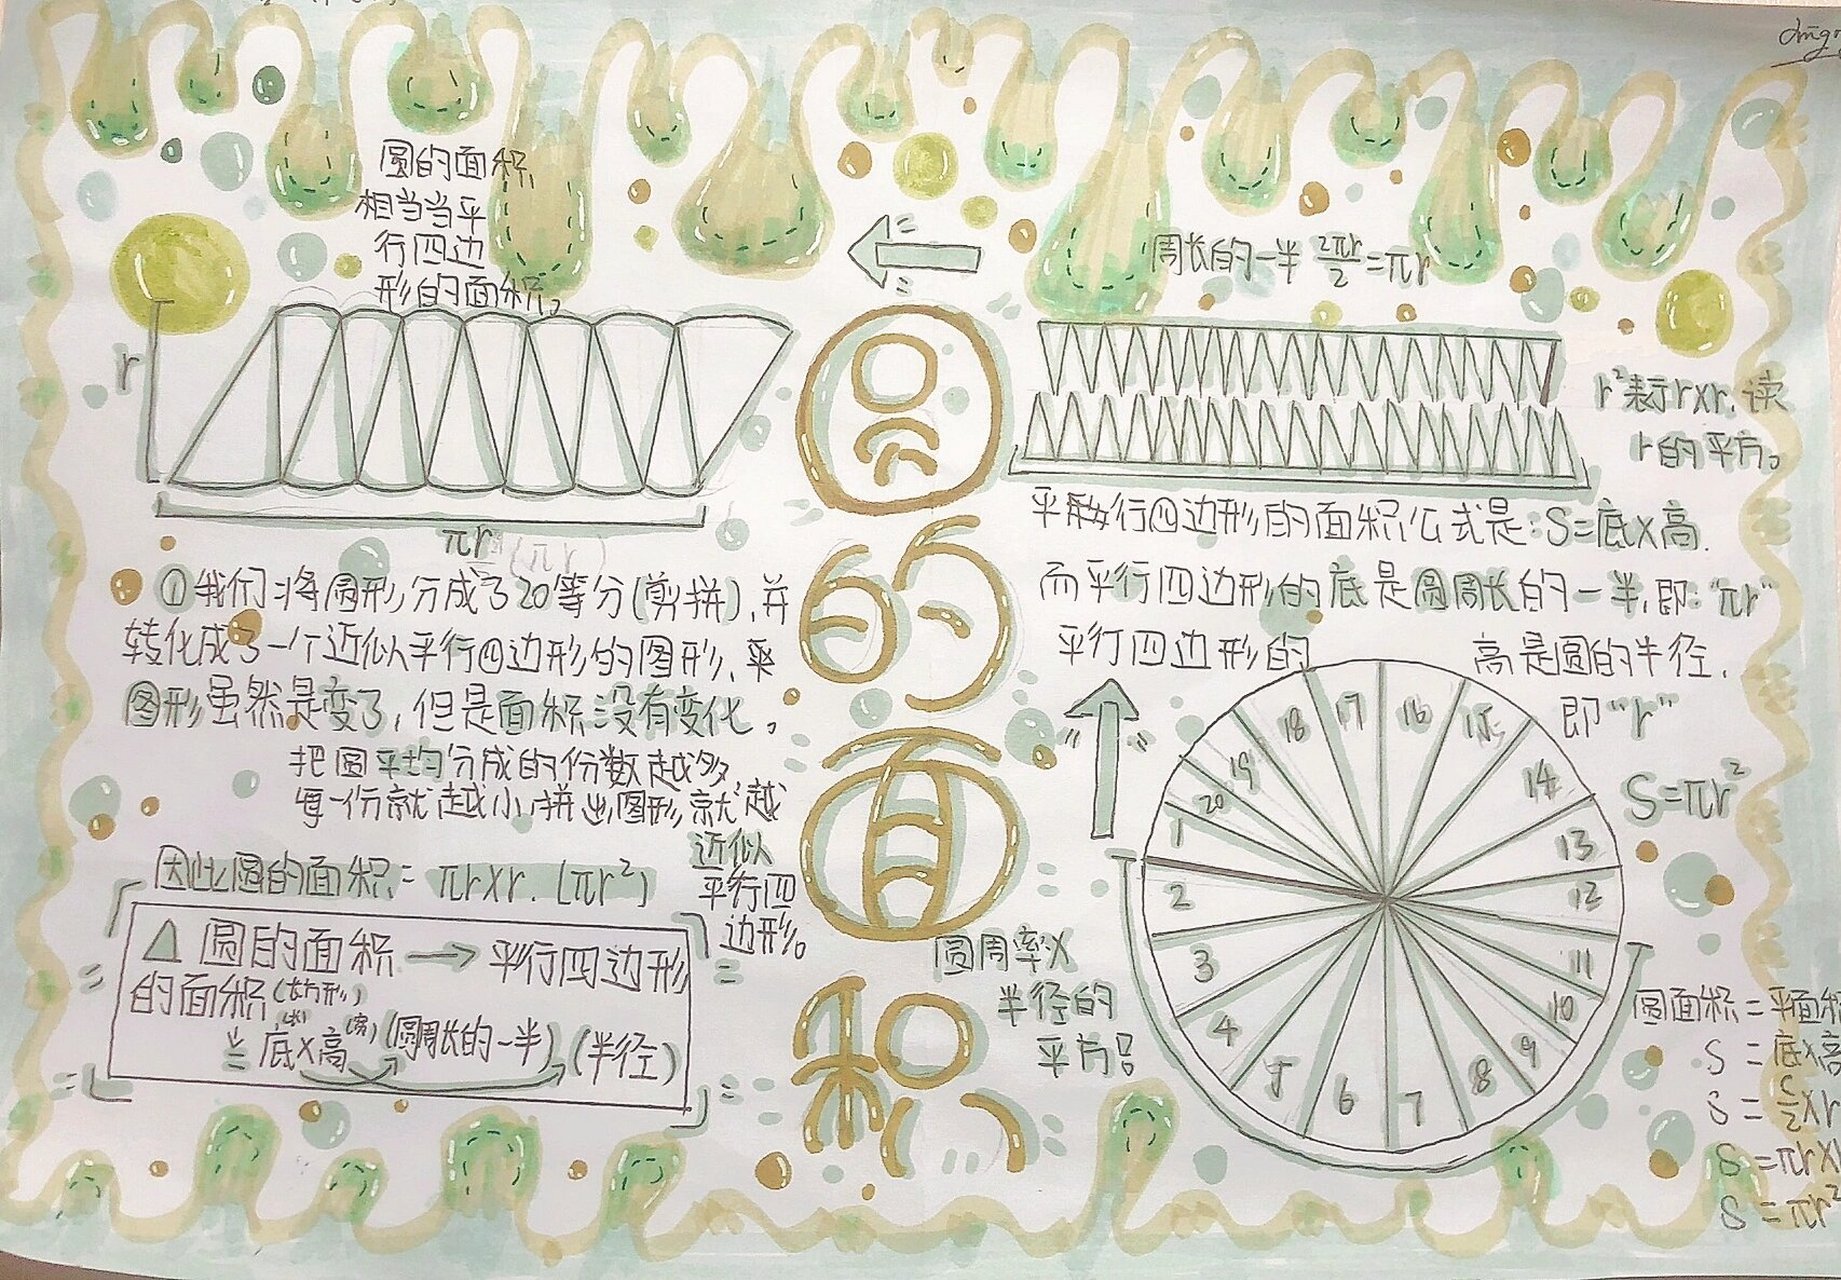 圆的面积
相当当平
行四边
形的面积。
r
πr
(πr)
①我们将圆形分成了20等分(剪拼),并
转化成了一个近似平行四边形的图形、
图形虽然是变了,但是面积没有变化。
把圆平均分成的份数越多,
每一份就越小,拼出图形就越
近似
平行四
边形。
因此圆的面积= πr×r.(πr²)
△圆的面积→平行四边形
的面积(长方形)
(长) (宽)
= 底×高 (圆周长的一半) (半径)
圆的面积
周长的一半 2πr/2=πr
r²表示r×r,读
r的平方。
平行四边形的面积公式是:S=底×高.
而平行四边形的底是圆周长的一半,即:"πr"
平行四边形的高是圆的半径.
即"r"
S=πr²
圆周率×
半径的
平方
17 16
18 15
19 14
20
1 13
2 12
3 11
4 10
5 9
6 7 8
圆面积=平面积
S=底×高
S=C/2×r
S=πr×r
S=πr²